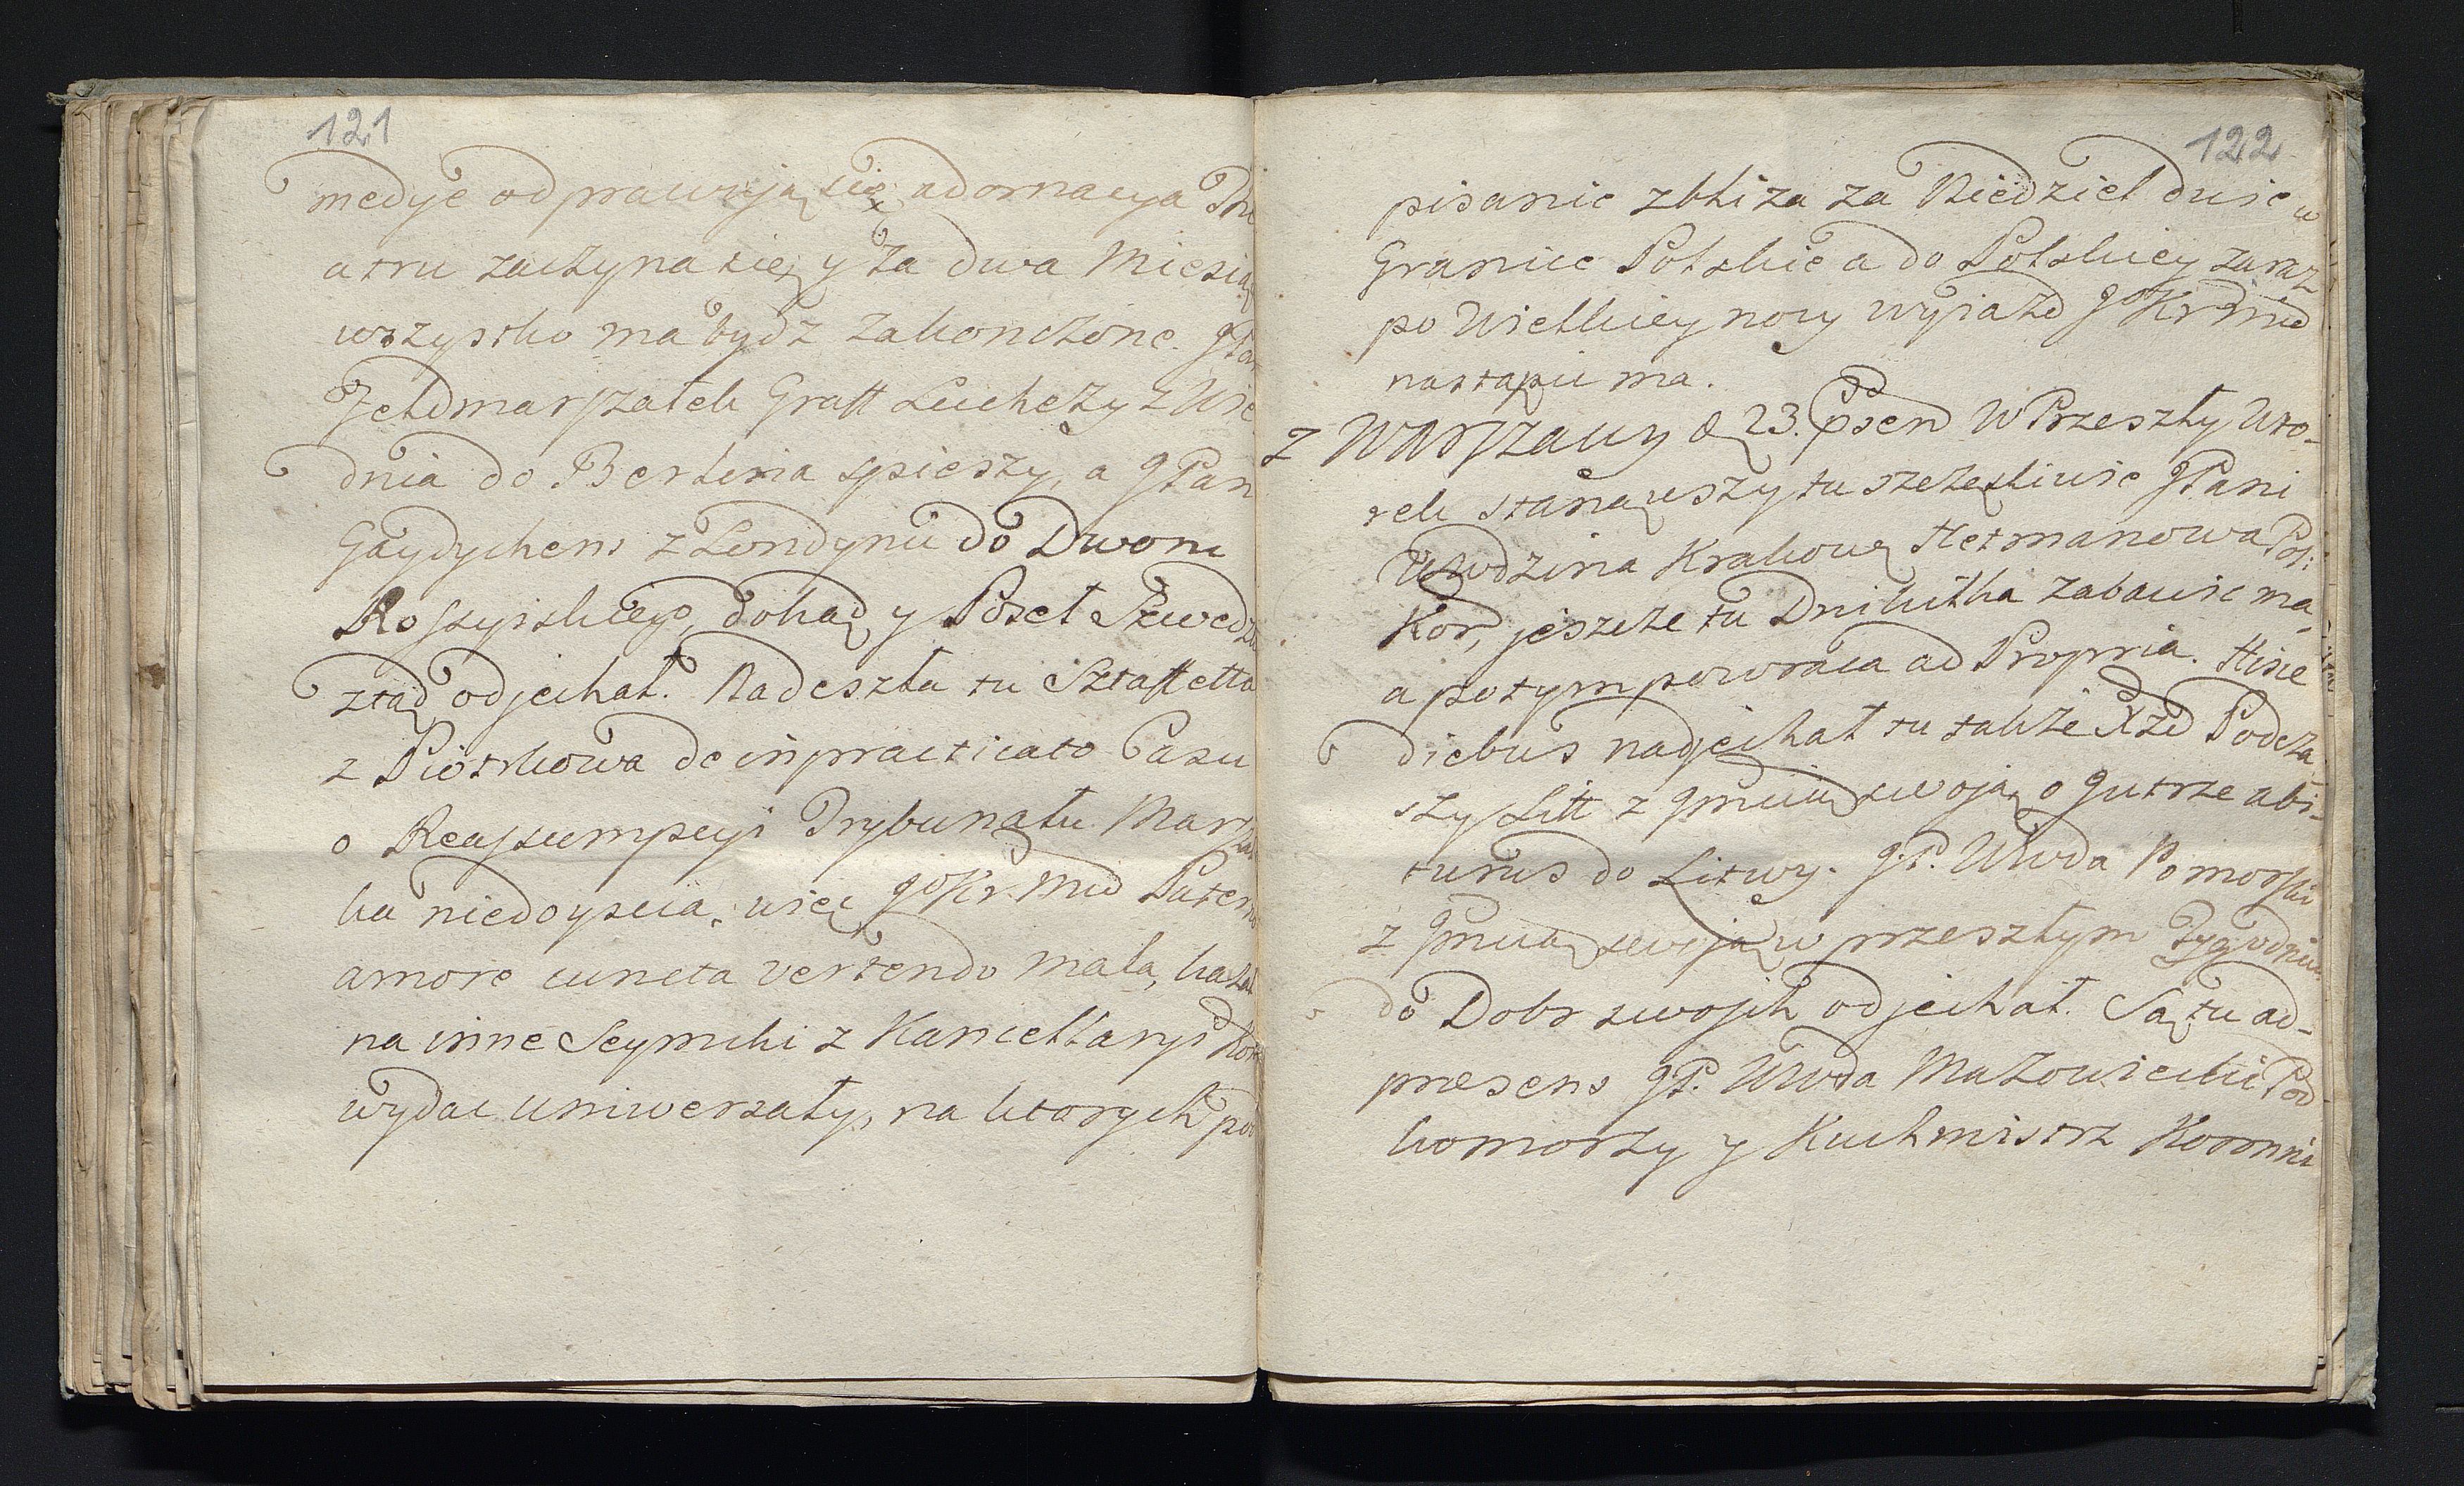 121
medye odprawiją się, adornacya The
atru zaczyna się y za dwa Miesią
wszystko ma bydz zakonczone. JPan
Feldmarszałek Graff Luchezy z Wie
dnia do Berlina spieszy, a JPan
Gaydychens z Londynu do Dworu
Rossyiskiego, dokąd y Poseł Szwedz
ztąd odjechał. Nadeszła tu Sztaffetta
z Piotrkowa de inpracticato Casu
o Reassumpcyi Trybunału Marszał
ka niedoyscia, więc JoKr Mść Patern
amore cuncta vertendo mala, kazał
na inne Seymiki z Kancellaryi Kor
wydac uniwersały, na ktorych pod
122
pisanie zbliza za Niedziel dwie w
Granice Polskie a do Polskiey zaraz
po Wielkiey nocy wyiazd JoKr Mśc
nastąpić ma.
Z Warszawy d. 23. psen W Przeszły Wto-
rek stanąwszy tu szczęsliwie JPani
Wwdzina Krakow. Hetmanowa Pol:
Kor, jeszcze tu Dni kilka zabawic ma,
a potym powraca ad Propria. Hisce
diebus nadjechał tu także Xże Podcza
szy Litt z Jmcią swoją o Jutrze abi-
turus do Litwy. J.P. Wwda Pomorski
z Jmcią swoją w przeszłym Tygodniu
do Dobr swojch odjechał. Są tu ad-
presens JP. Wwda Mazowiecki Pod
komorzy y Kuchmistrz Koronni